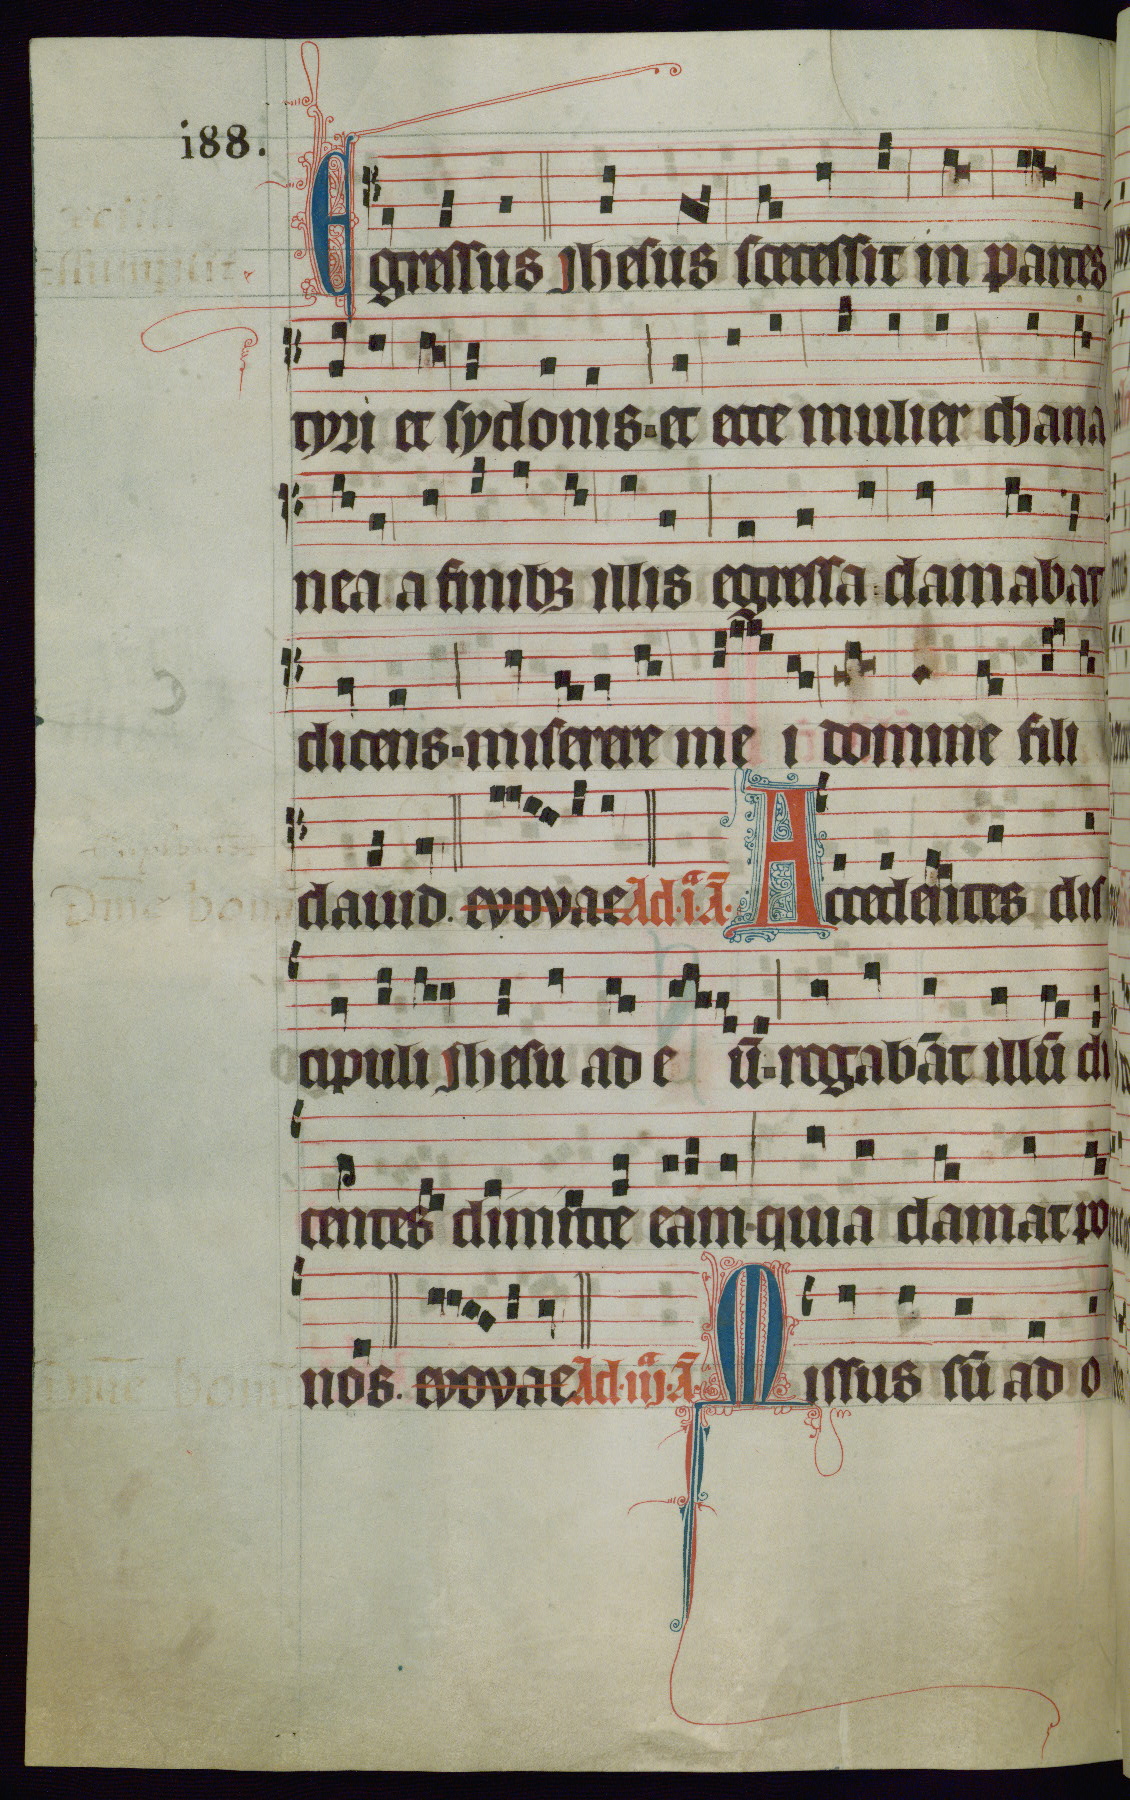 i88.
Egressus Jhesus scecessit in partes
tyri et sydonis et ecce mulier chana
nea a finibꝫ illis egressa clamabat
dicens miserere me i domine fili
dauid. evovae Ad .i. A. Accedentes dis
cipuli Jhesu ad e ū rogabāt illū di
centes dimitte eam quia clamat po
nos. evovae Ad .iij. A. Missus sū ad o